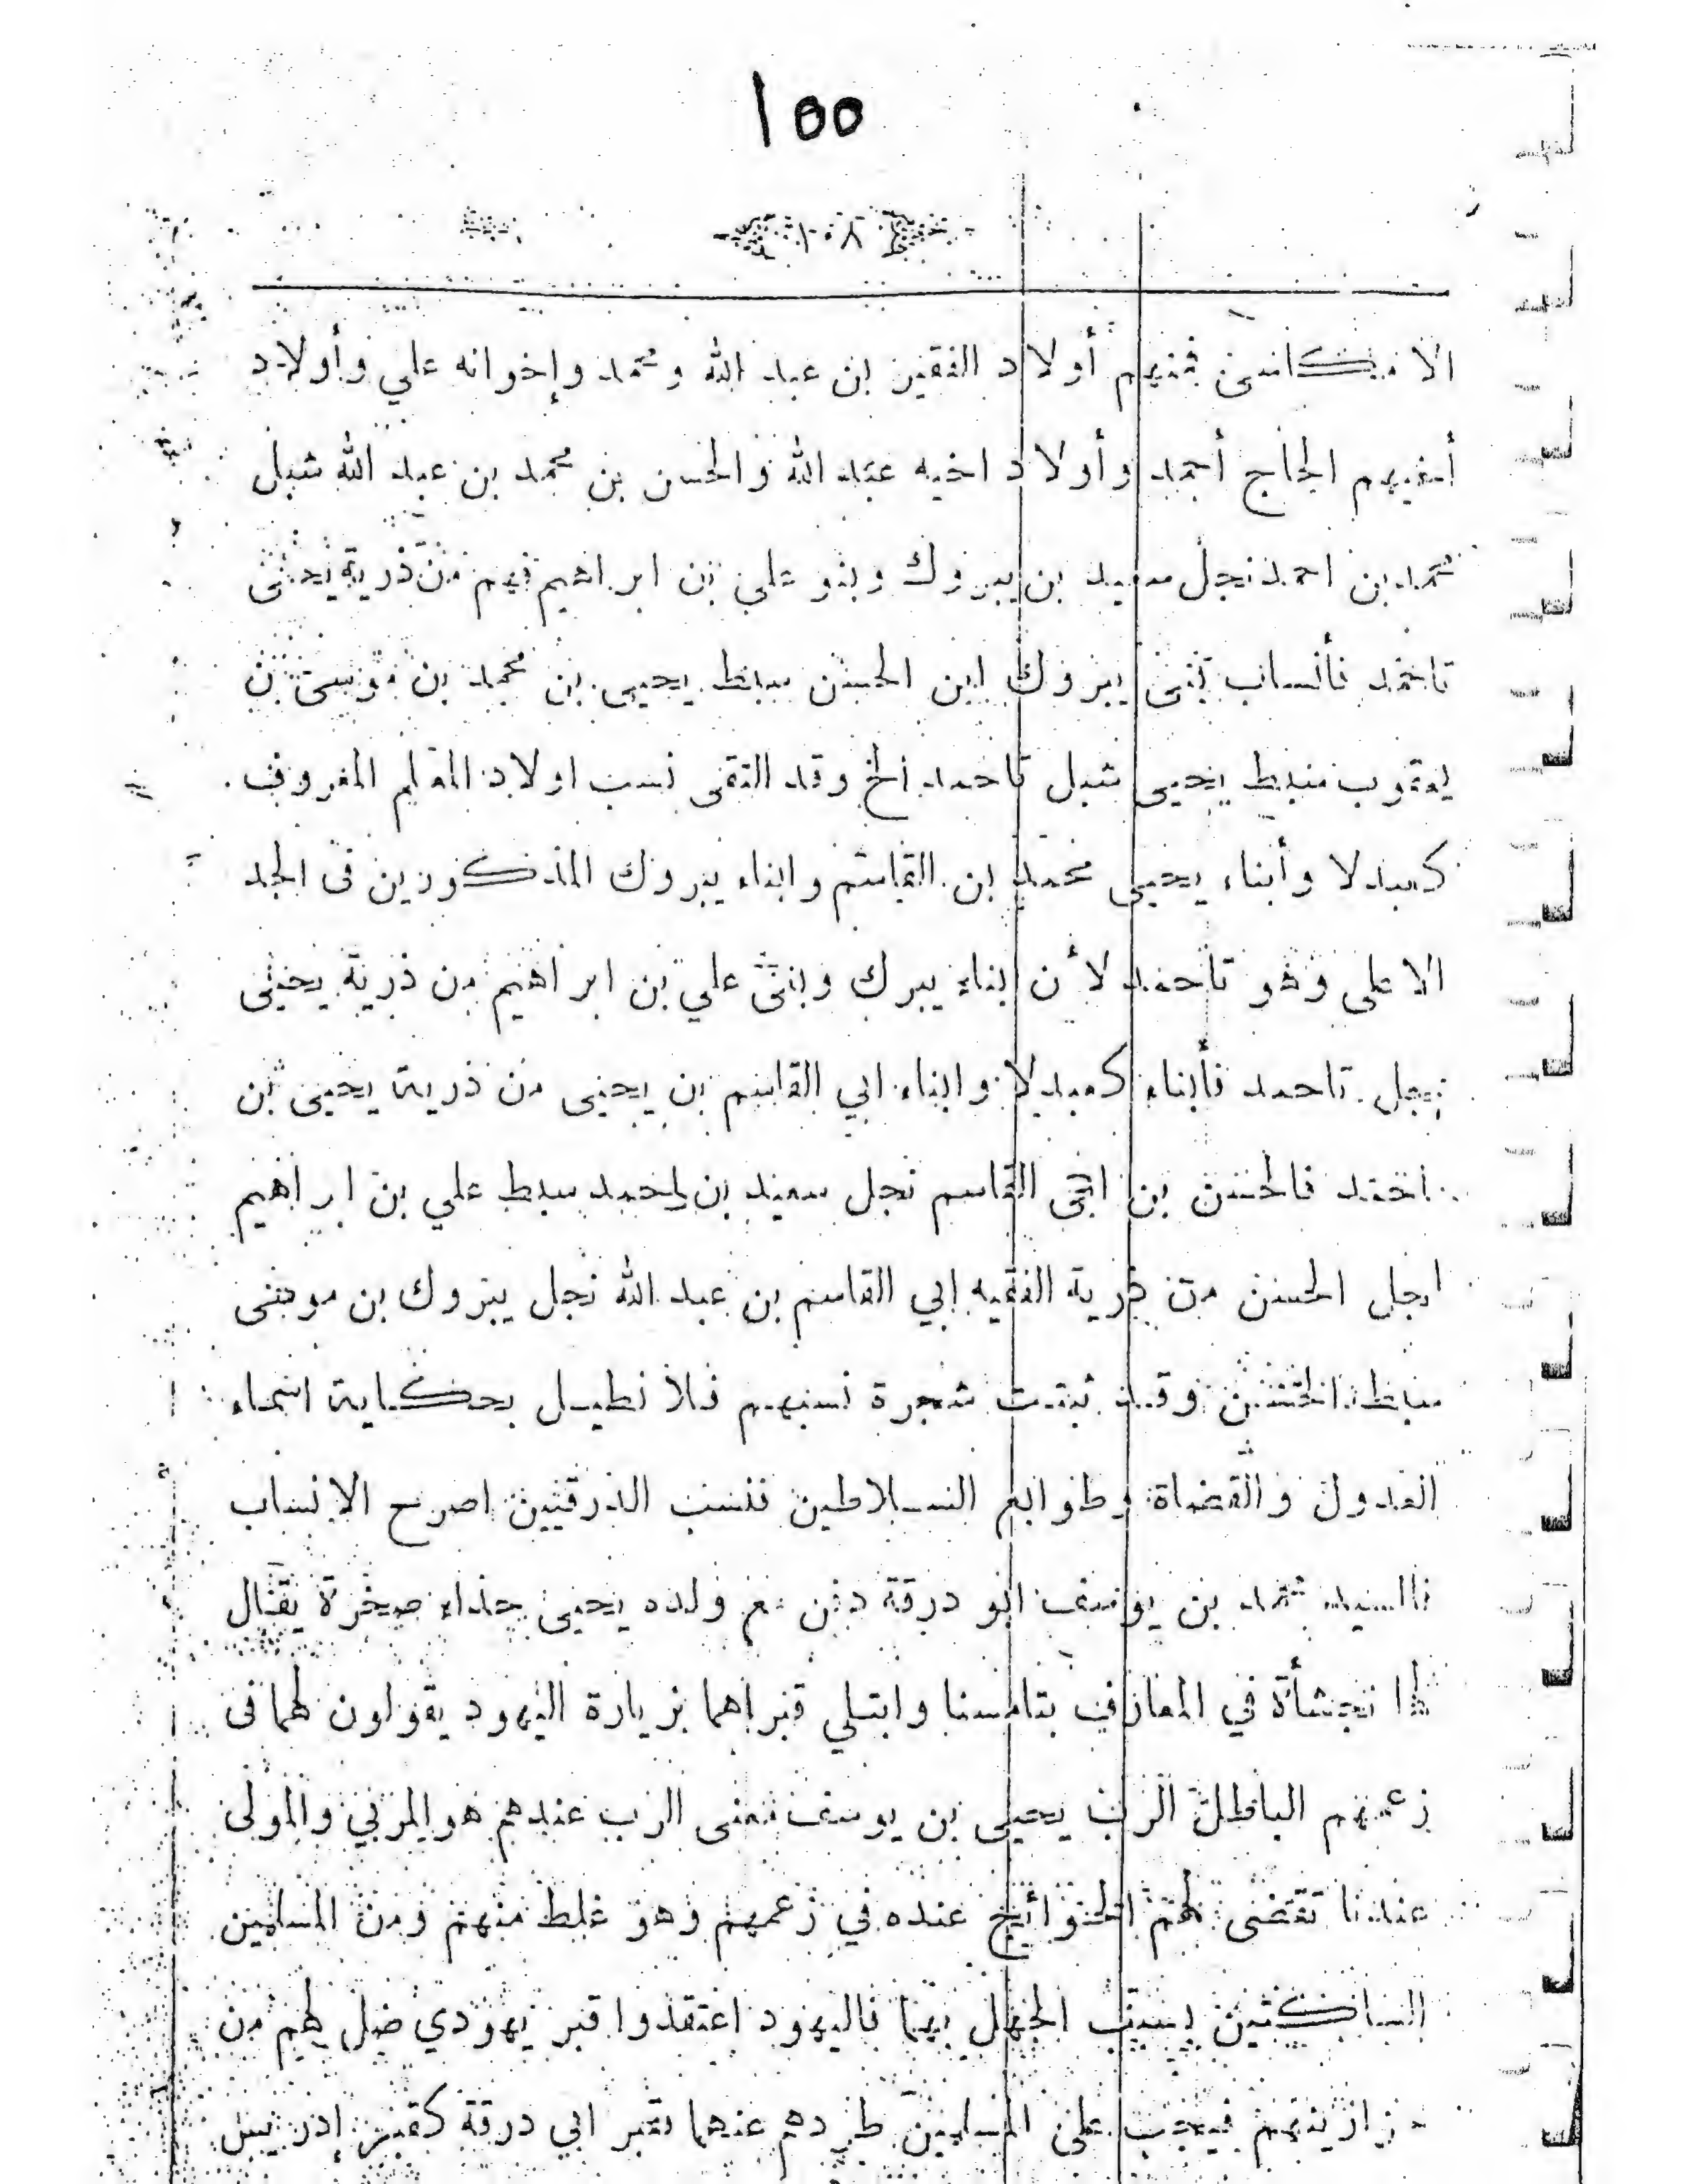 ١٥٥
١٠٨
فمنهم أولاد الفقير ابن عبد الله ومحمد وإخوانه علي وأولاد
أخيهم الحاج أحمد وأولاد اخيه عبد الله والحسن بن محمد بن عبد الله شبل
محمد بن احمد نجل سعيد بن يبروك وبنو علي بن ابراهيم فهم من ذرية يحيى
تاحمد فأنساب بنى يبروك ابن الحسن سبط يحيى بن محمد بن موسى بن
يعقوب سبط يحيى شبل تاحمد الخ وقد التقى نسب اولاد المعلم المعروف
كعبدلا وأبناء يحيى محمد بن القاسم وابناء يبروك المذكورين فى الجد
الاعلى وهو تاحمد لأن ابناء يبرك وبنى علي بن ابراهيم من ذرية يحيى
نجل تاحمد فأبناء كعبدلا وابناء ابي القاسم بن يحيى من ذرية يحيى بن
احمد فالحسن بن ابى القاسم نجل سعيد بن احمد سبط علي بن ابراهيم
نجل الحسن من ذرية الفقيه ابي القاسم بن عبد الله نجل يبروك بن موسى
سبط الحسن وقد ثبتت شجرة نسبهم فلا نطيل بحكاية اسماء
العدول والقضاة وطوابع السلاطين فنسب الدرقيين اصرح الانساب
فالسيد محمد بن يوسف ابو درقة دفن مع ولده يحيى حذاء صخرة يقال
لها في المعازف بتامسنا وابتلي قبراهما بزيارة اليهود يقولون لهما فى
زعمهم الباطل الرب يحيى بن يوسف فمعنى الرب عندهم هو المربي والمولى
عندنا تقضى لهم الحوائج عنده في زعمهم وهو غلط منهم ومن المسلمين
الساكتين بسبب الجهل بهما فاليهود اعتقدوا قبر يهودي ضل لهم من
فيجب على المسلمين طردهم عنهما فقبر ابي درقة كقبر إدريس